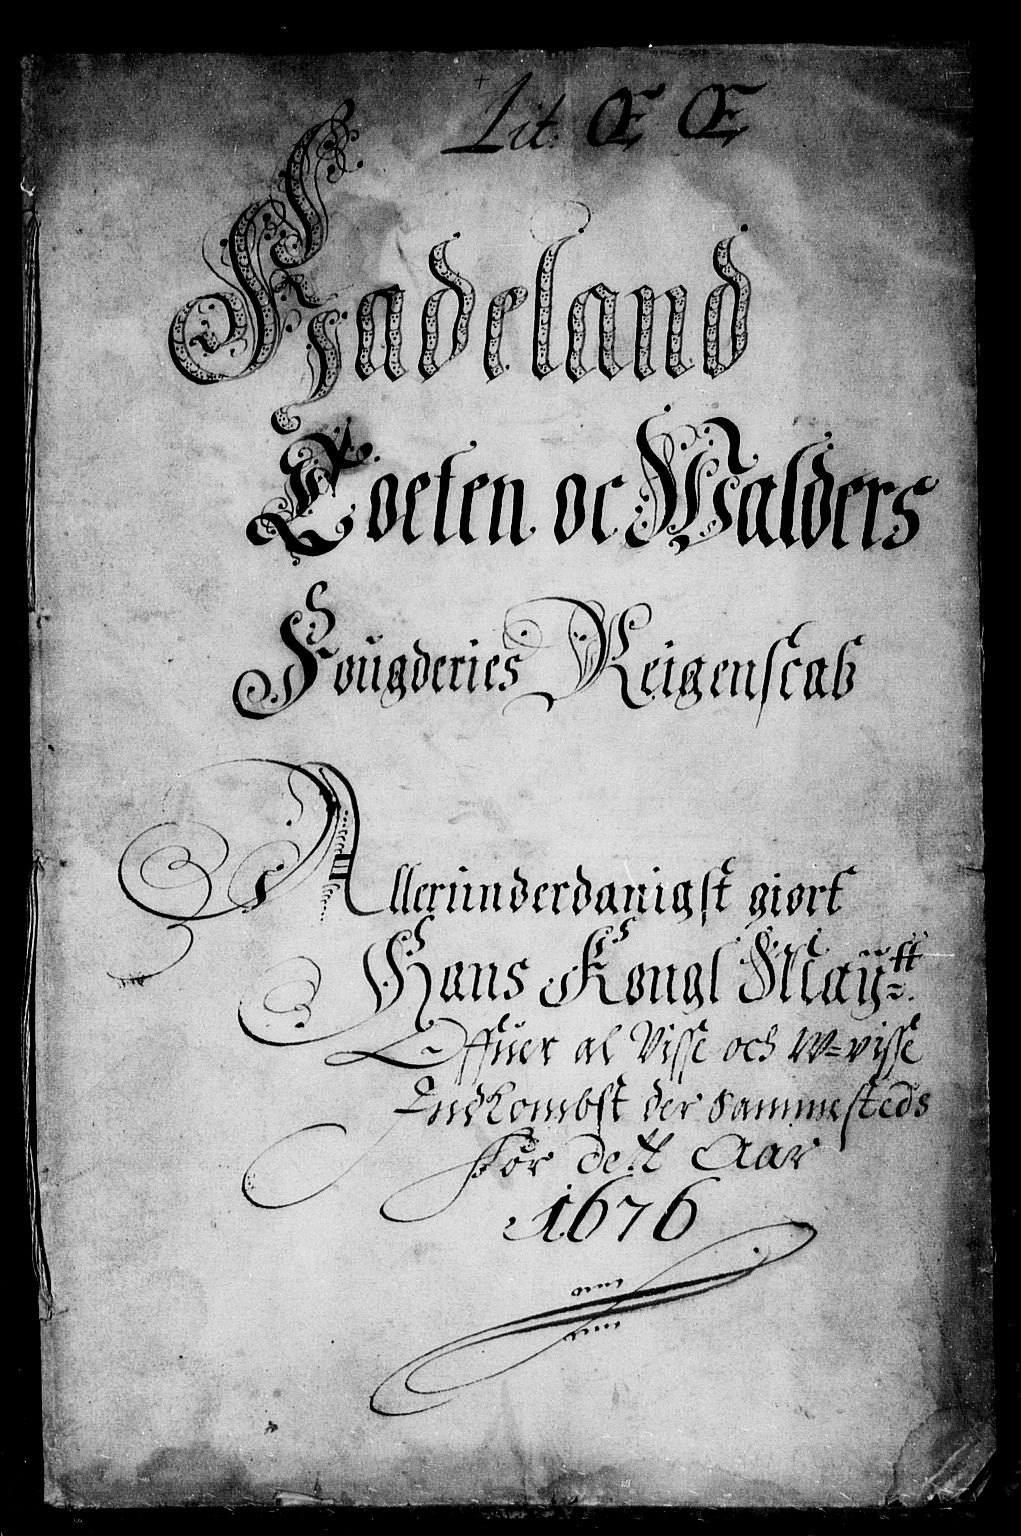 Lit. Œ Œ
Hadeland
Toeten oc Walders
Fougderies Reigenscab
Allerunderdanigst giort
Hans Kongl Maÿtt=.
Offuer al Visse och W=visse
Indkombst der Sammesteds
For dett Aar
1676